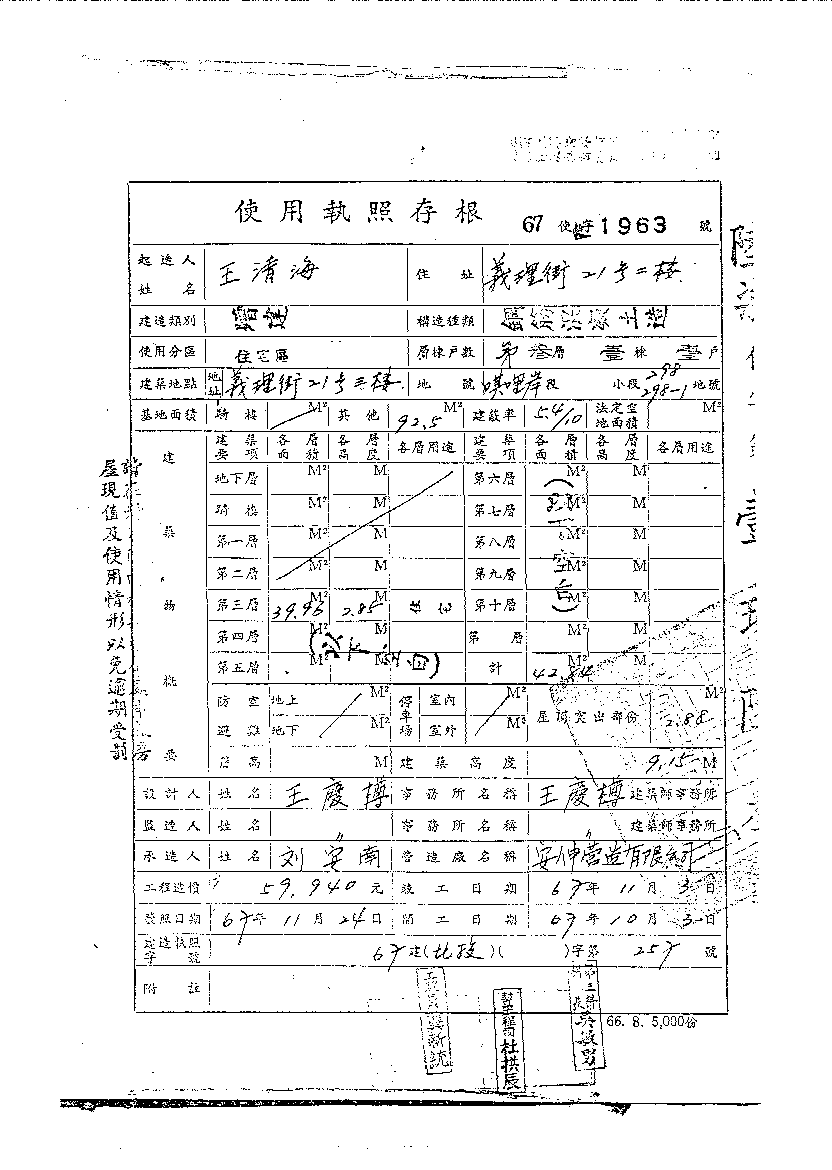 使用執照存根 67 使字 1963 號
起造人姓名 王清海 住址 義理街21号二楼
建造類別 增建 構造種類 鋼筋混凝土造
使用分區 住宅區 層棟戶數 第叁層 壹棟 壹戶
建築地點 地址 義理街21号三楼 地號 唭哩岸段 小段 298 298-1 地號
基地面積 騎樓 M² 其他 92.5 M² 建蔽率 5.4/10 法定空地面積 M²
建築物概要
建築要項 各層面積 各層高度 各層用途 建築要項 各層面積 各層高度 各層用途
地下層 M² M 第六層 M² M
騎樓 M² M 第七層 M² M
第一層 M² M 第八層 M² M
第二層 M² M 第九層 M² M
第三層 39.96 M² 2.85 M 第十層 M² M
第四層 M² M 第 層 M² M
第五層 M² M 計 42.84 M² M
(以下空白)
防空避難 地上 M² 停車場 室內 M² 屋頂突出部份 2.88 M²
地下 M² 室外 M²
簷高 M 建築高度 9.15 M
設計人 姓名 王慶樽 事務所名稱 王慶樽 建築師事務所
監造人 姓名 〃 事務所名稱 〃 建築師事務所
承造人 姓名 刘安南 營造廠名稱
工程造價 59,940 元 竣工日期 67年11月3日
發照日期 67年11月24日 開工日期 67年10月3日
建造執照字號 67建(北投)( )字第 257 號
附註
66. 8. 5,000份
屋現值及使用情形以免逾期受罰
杜拱辰